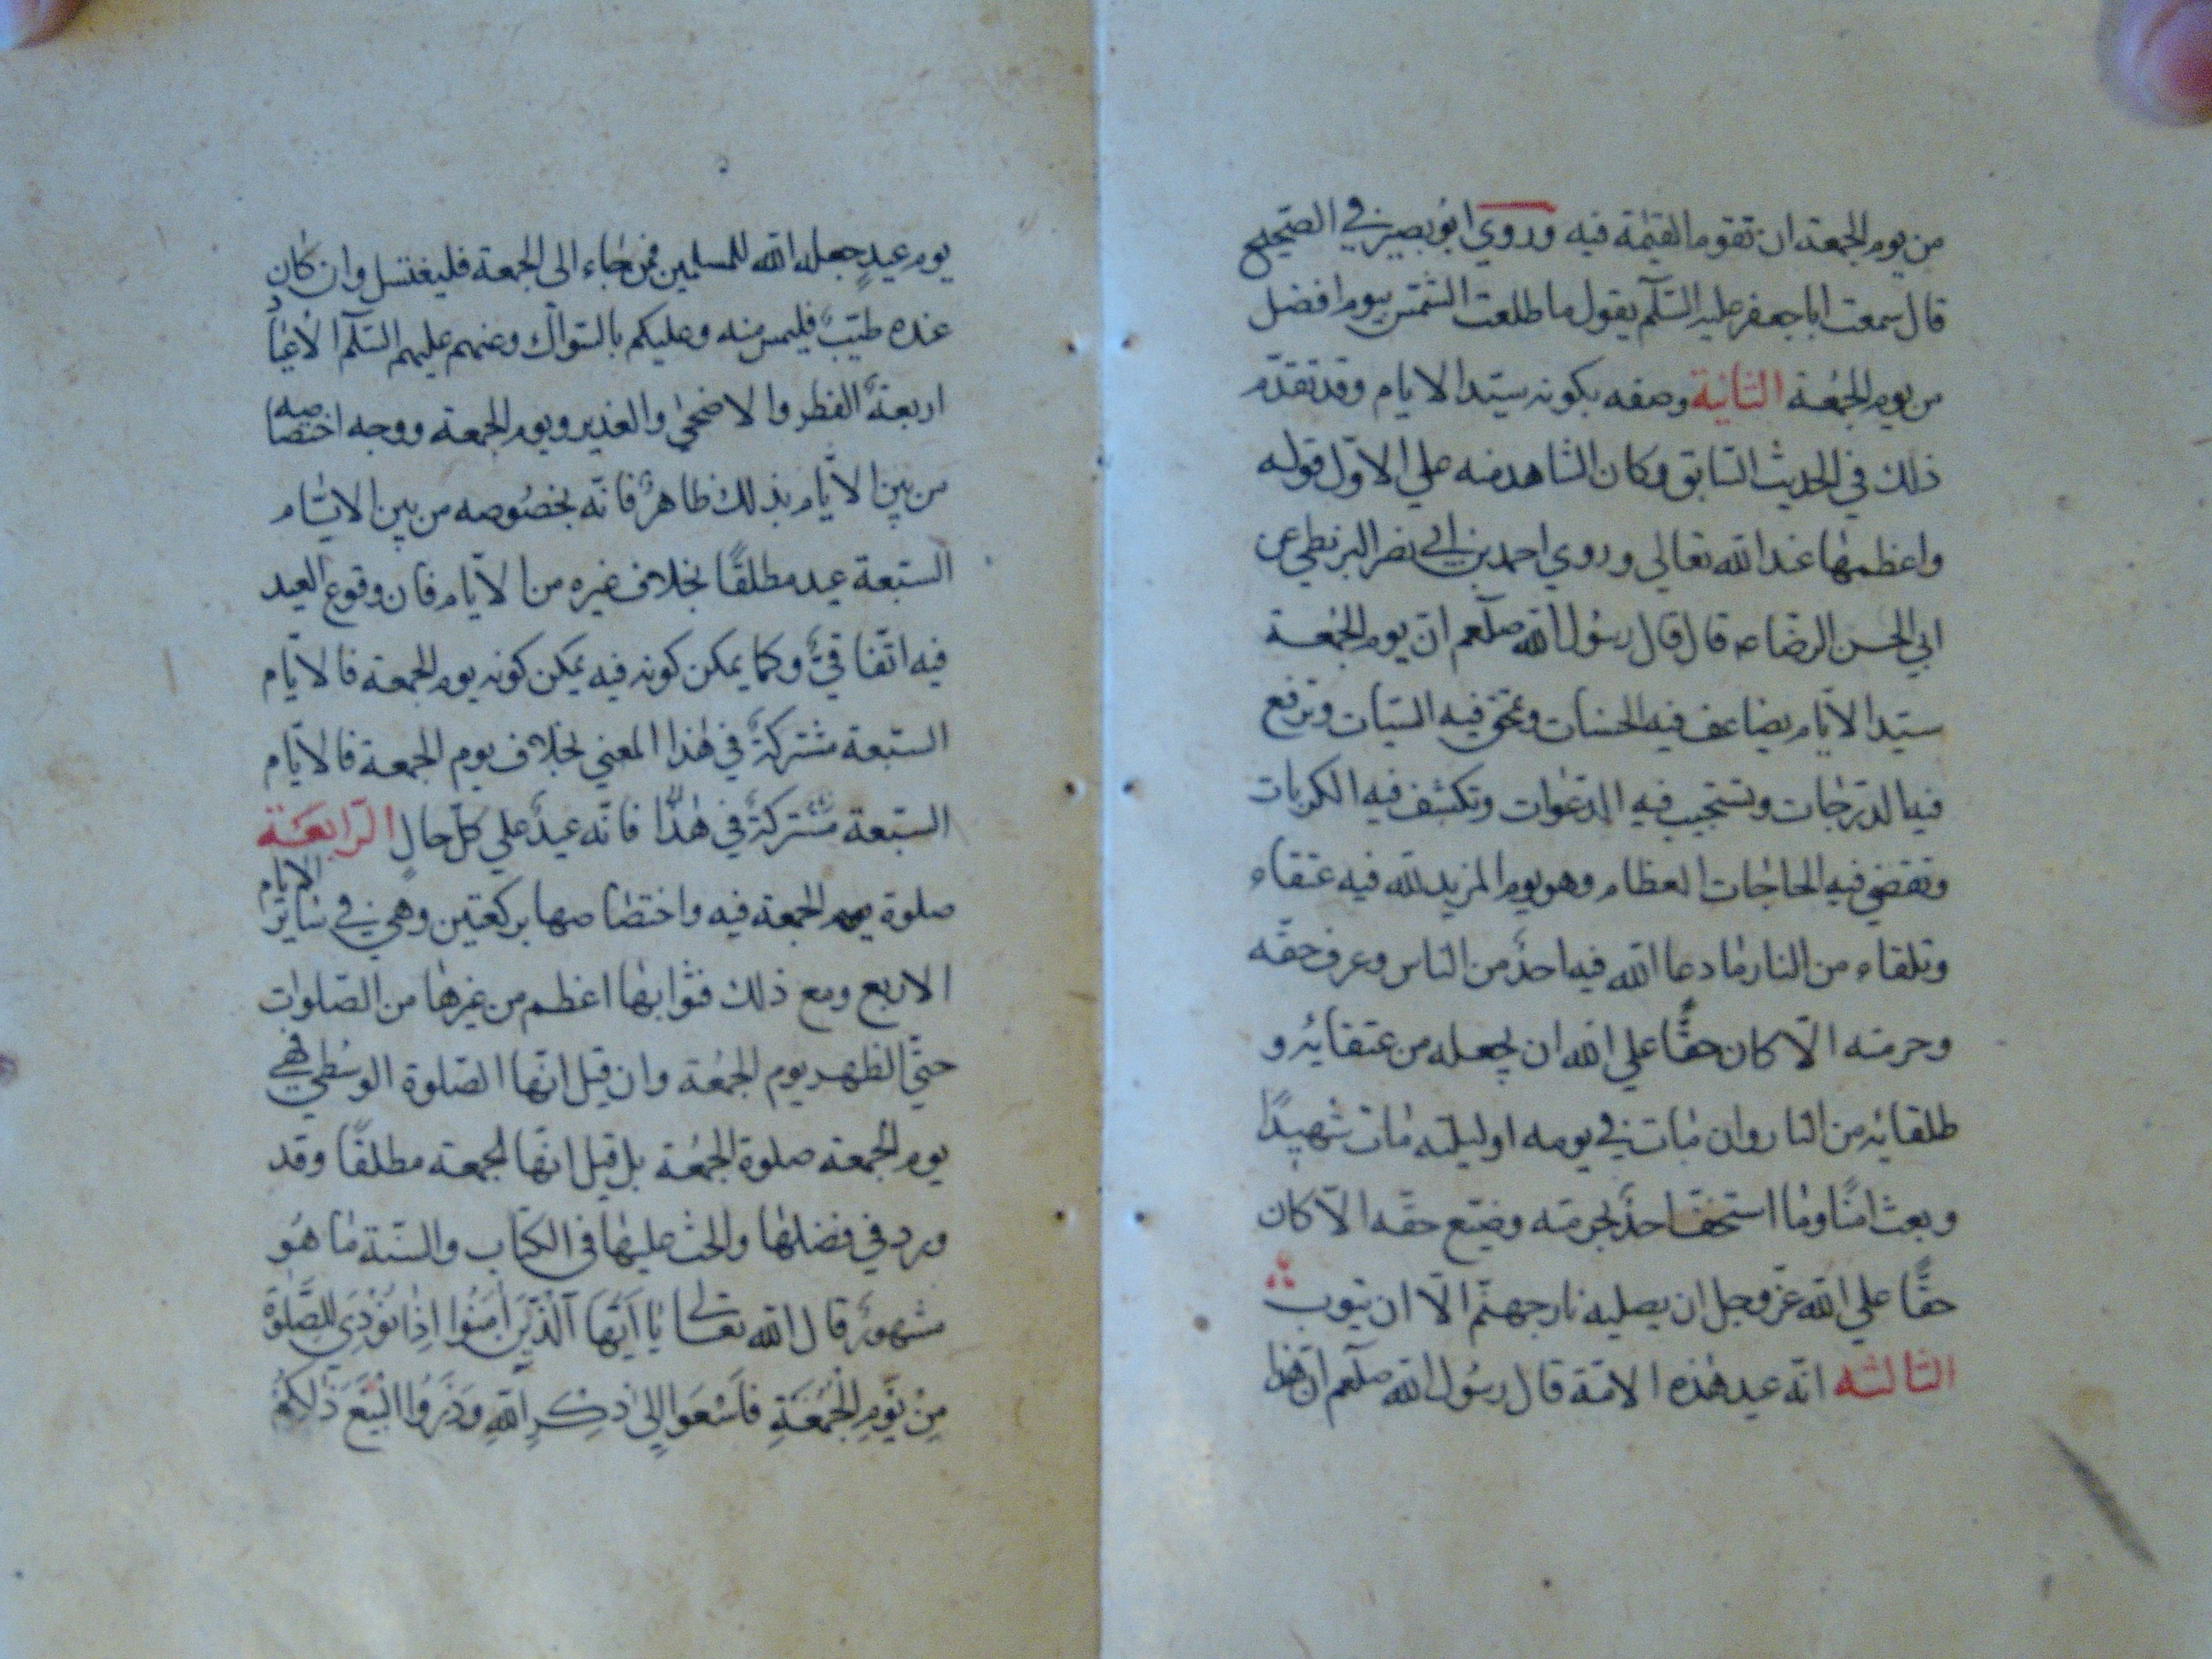 من يوم الجمعة ان تقوم القيمة فيه وروي ابو بصير في الصحيح
قال سمعت ابا جعفر عليه السلم يقول ما طلعت الشمس بيوم افضل
من يوم الجمعة الثانية وصفه بكونه سيد الايام وقد تقدم
ذلك في الحديث السابق وكان الشاهد منه علي الاول قوله
واعظمها عند الله تعالي وروي احمد بن ابي نصر البزنطي عن
ابي الحسن الرضا عه قال قال رسول الله صلعم ان يوم الجمعة
سيد الايام يضاعف فيه الحسنات وتمحي فيه السيات وترفع
فيه الدرجات وتستجيب فيه الدعوات وتكشف فيه الكربات
وتقضي فيه الحاجات العظام وهو يوم المزيد لله فيه عتقاء
وتلقاء من النار ما دعا الله فيه احد من الناس وعرف حقه
وحرمته الا كان حقا علي الله ان يجعله من عتقائه و
طلقائه من النار وان مات في يومه او ليلته مات شهيدا
وبعث امنا وما استخف احد بحرمته وضيع حقه الا كان
حقا علي الله عز وجل ان يصليه نار جهنم الا ان يتوب
الثالثه انه عيد هذه الامة قال رسول الله صلعم ان هذا
يوم عيد جعله الله للمسلمين فمن جاء الى الجمعة فليغتسل وان كان
عنده طيب فليمس منه وعليكم بالسواك وعنهم عليهم السلم الاعياد
اربعة الفطر والاضحي والغدير ويوم الجمعة ووجه اختصاصه
من بين الايام بذلك ظاهر فانه بخصوصه من بين الايام
السبعة عيد مطلقا بخلاف غيره من الايام فان وقوع العيد
فيه اتفاقي وكما يمكن كونه فيه يمكن كونه يوم الجمعة فالايام
السبعة مشتركة في هذا المعني بخلاف يوم الجمعة فالايام
السبعة مشتركة في هذا فانه عيد علي كل حال الرابعة
صلوة يوم الجمعة فيه واختصاصها بركعتين وهي في ساير الايام
الاربع ومع ذلك فثوابها اعظم من غيرها من الصلوات
حتي الظهر يوم الجمعة وان قيل انها الصلوة الوسطي فهي
يوم الجمعة صلوة الجمعة بل قيل انها الجمعة مطلقا وقد
ورد في فضلها والحث عليها في الكتاب والسنة ما هو
مشهور قال الله تعالى يَا اَيُّهَا الَّذِيْنَ اٰمَنُوا اِذَا نُوْدِيَ لِلصَّلٰوةِ
مِنْ يَّوْمِ الْجُمُعَةِ فَاسْعَوا اِلىٰ ذِكْرِ اللّٰهِ وَذَرُوا الْبَيْعَ ذٰلِكُمْ